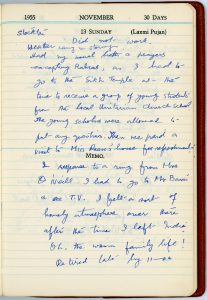 1955 NOVEMBER 30 DAYS
13 SUNDAY (Laxmi Pujan)
Stockton
Did not work.
Weather rainy & stormy.
Had my usual bath & prayers
excepting Rehras, as I had to
go to the Sikh Temple at the
time to receive a group of young students
from the local Unitarian Church School
The young scholars were allowed to
put any questions. Then we paid a
visit to Mrs 's house for refreshments.
MEMO.
In response to a ring from Mrs
O Neill I had to go to Mrs
a see T.V. I felt a sort of
homely atmosphere over there
after the time I left India
Oh, the warm family life!
Retired late by 11-00